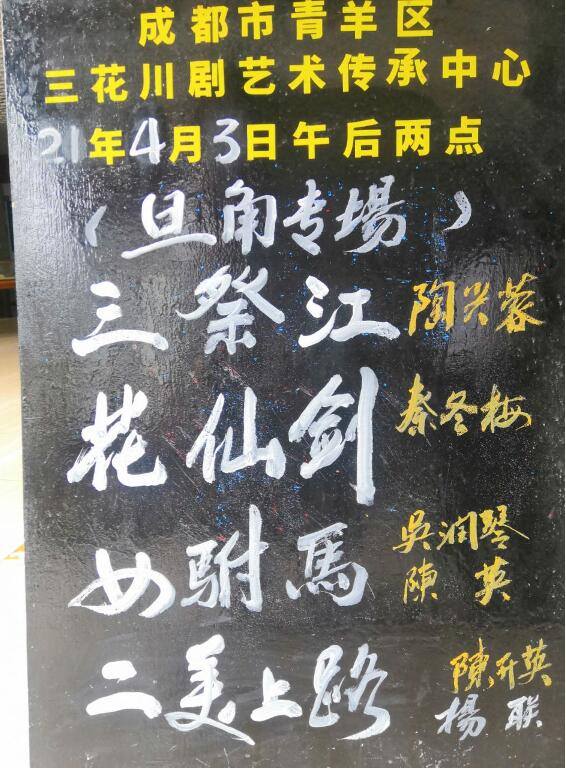 成都市青羊区
三花川剧艺术传承中心
21年4月3日午后两点
（旦角专場）
三祭江 陶兴蓉
花仙剑 秦冬梅
女駙馬 吳润琴
陳英
二美上路 陳开英
楊联